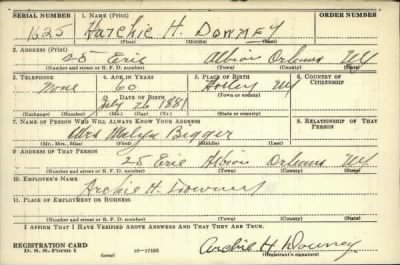 SERIAL NUMBER 1. NAME (Print) ORDER NUMBER
1625 Hatchie H. Downey
(First) (Middle) (Last)
2. ADDRESS (Print)
25 Erie Albion Orleans NY
(Number and street or R. F. D. number) (Town) (County) (State)
3. TELEPHONE 4. AGE IN YEARS 5. PLACE OF BIRTH 6. COUNTRY OF CITIZENSHIP
None 60 Holley NY
DATE OF BIRTH (Town or county)
July 26 1881
(Exchange) (Number) (Mo.) (Day) (Yr.) (State or country)
7. NAME OF PERSON WHO WILL ALWAYS KNOW YOUR ADDRESS 8. RELATIONSHIP OF THAT PERSON
Mrs Bigger
(Mr., Mrs., Miss) (First) (Middle) (Last)
9. ADDRESS OF THAT PERSON
25 Erie Albion Orleans NY
(Number and street or R. F. D. number) (Town) (County) (State)
10. EMPLOYER'S NAME
Archie H. Downey
11. PLACE OF EMPLOYMENT OR BUSINESS
(Number and street or R. F. D. number) (Town) (County) (State)
I AFFIRM THAT I HAVE VERIFIED ABOVE ANSWERS AND THAT THEY ARE TRUE.
REGISTRATION CARD
D. S. S. Form 1 16-17105 Archie H Downey
(Registrant's signature)